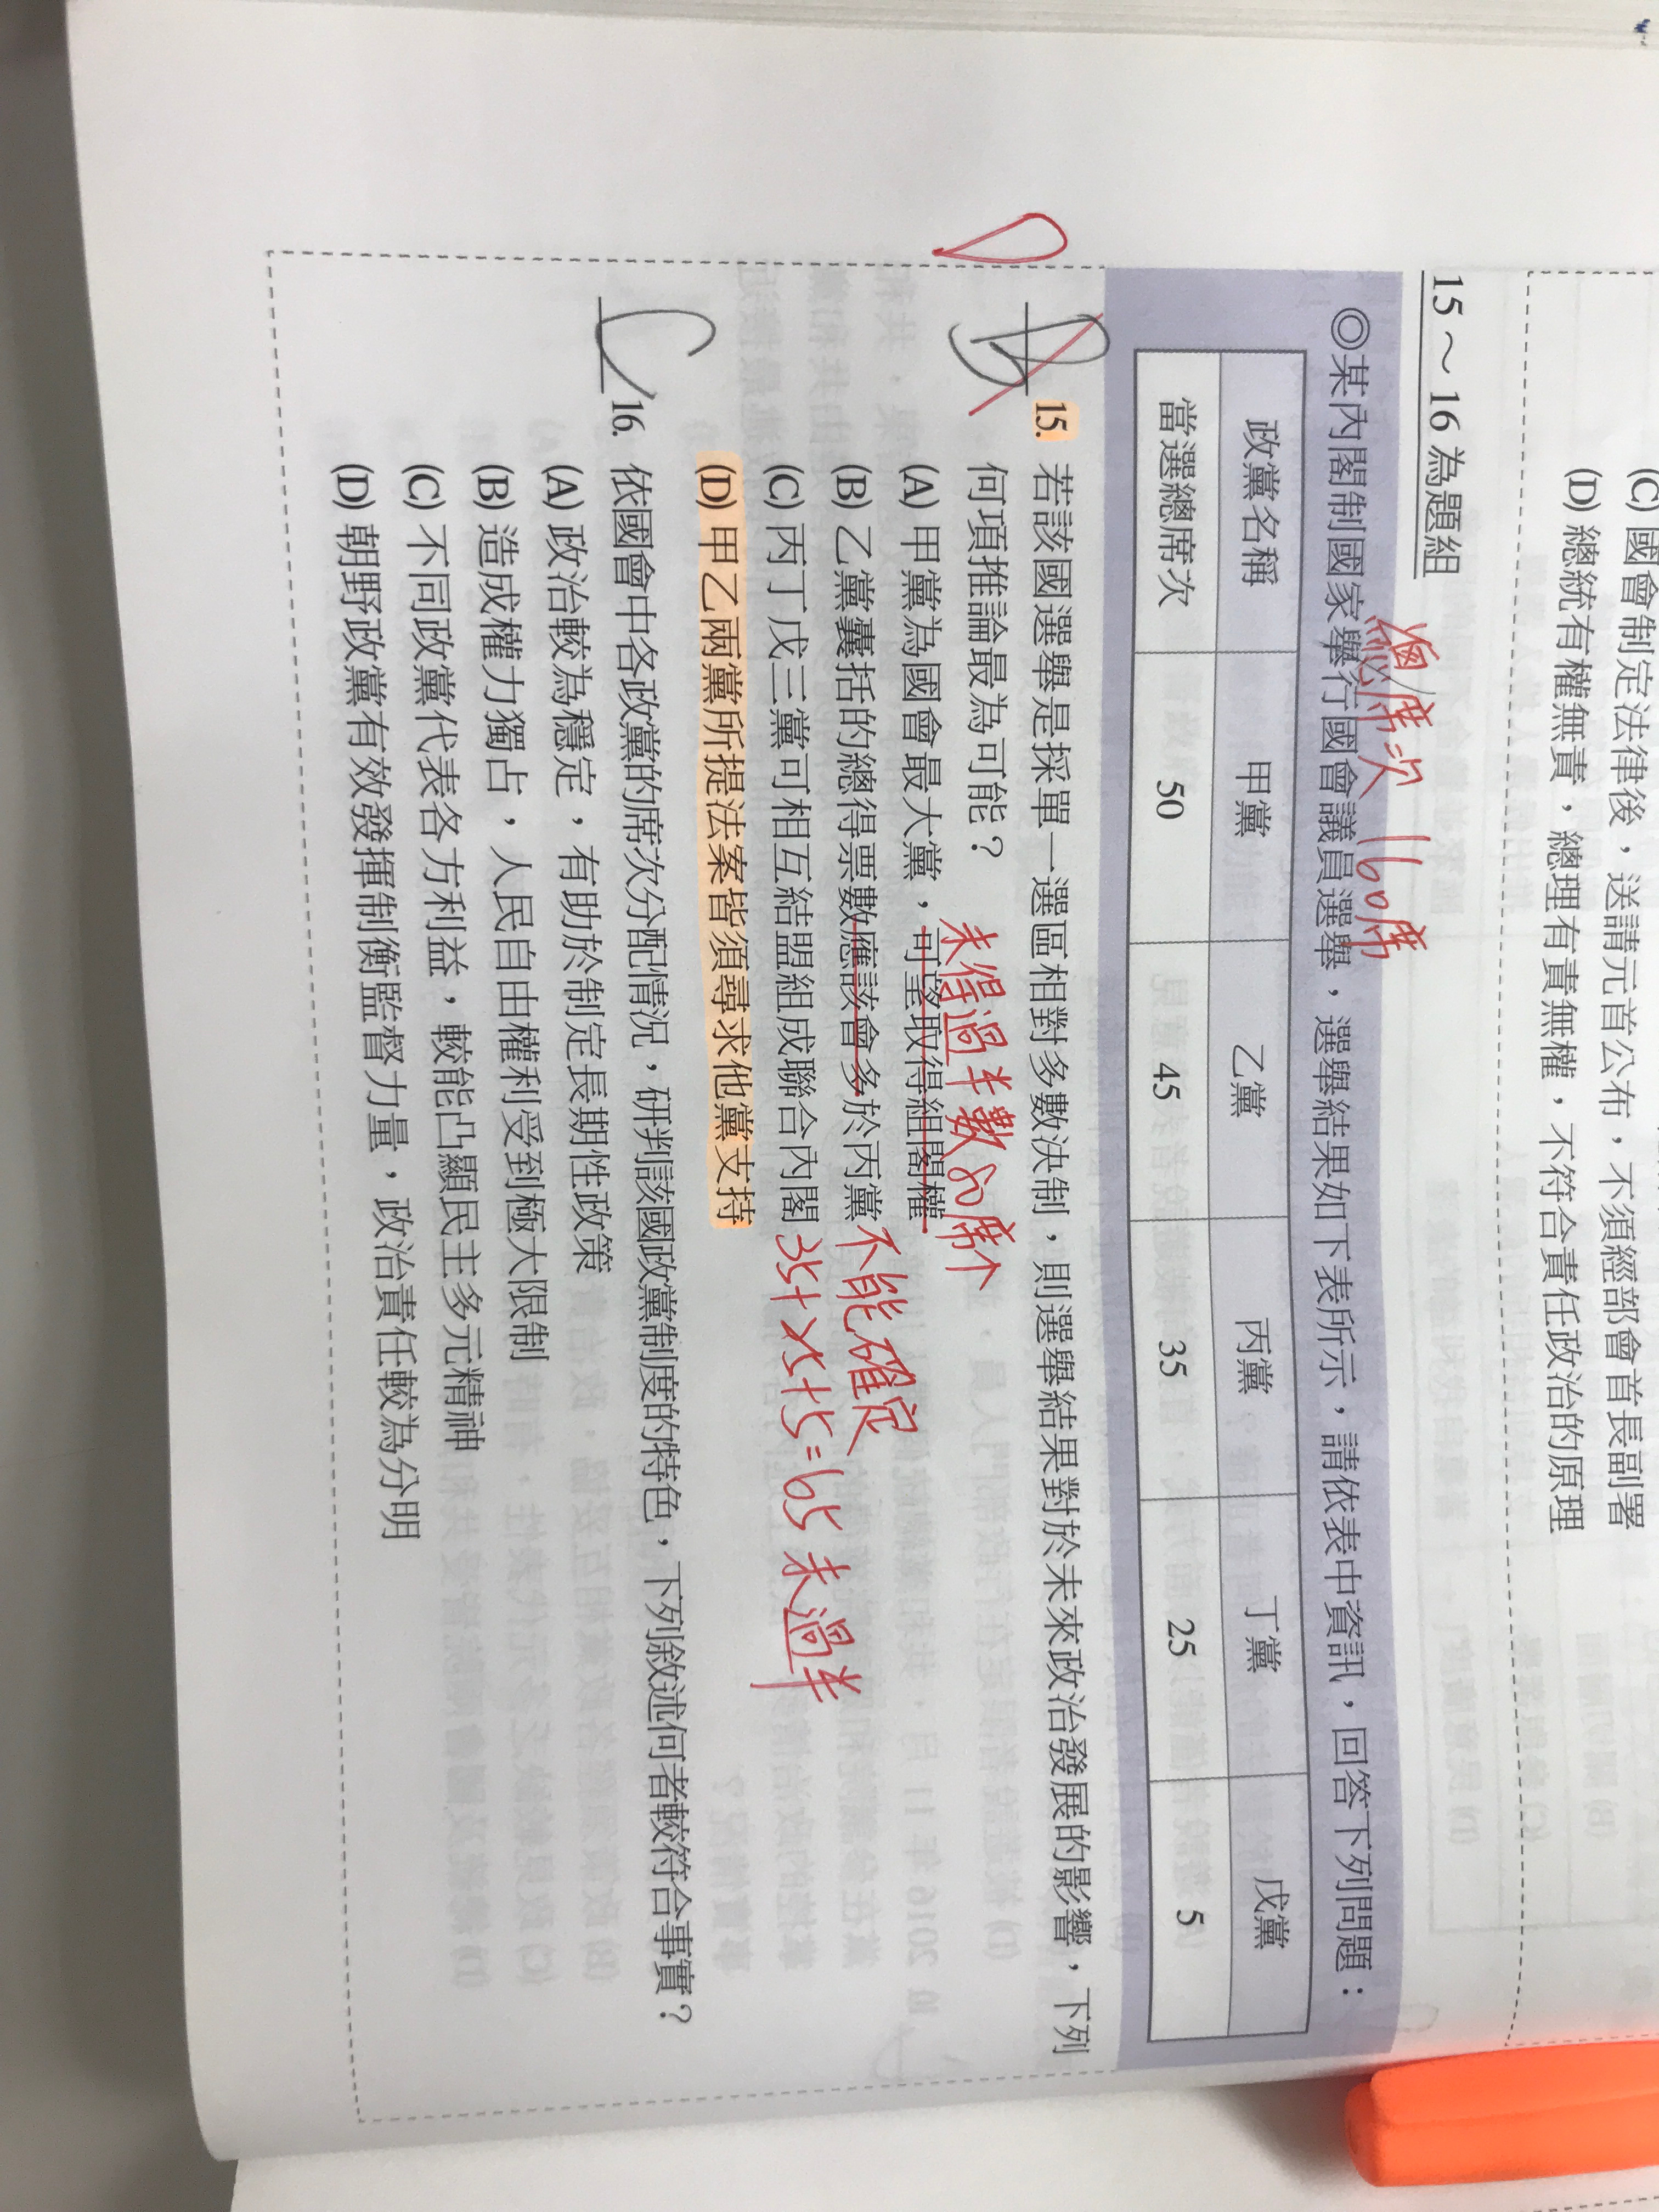 (C) 國會制定法律後，送請元首公布，不須經部會首長副署
(D) 總統有權無責，總理有責無權，不符合責任政治的原理
15～16 為題組
總席次 160席
◎某內閣制國家舉行國會議員選舉，選舉結果如下表所示，請依表中資訊，回答下列問題：
政黨名稱 甲黨 乙黨 丙黨 丁黨 戊黨
當選總席次 50 45 35 25 5
D
B 15. 若該國選舉是採單一選區相對多數決制，則選舉結果對於未來政治發展的影響，下列
何項推論最為可能？
未得過半數 80席↑
(A) 甲黨為國會最大黨，可望取得組閣權
(B) 乙黨囊括的總得票數應該會多於丙黨 不能確定
(C) 丙丁戊三黨可相互結盟組成聯合內閣 35+25+5=65 未過半
(D) 甲乙兩黨所提法案皆須尋求他黨支持
C 16. 依國會中各政黨的席次分配情況，研判該國政黨制度的特色，下列敘述何者較符合事實？
(A) 政治較為穩定，有助於制定長期性政策
(B) 造成權力獨占，人民自由權利受到極大限制
(C) 不同政黨代表各方利益，較能凸顯民主多元精神
(D) 朝野政黨有效發揮制衡監督力量，政治責任較為分明